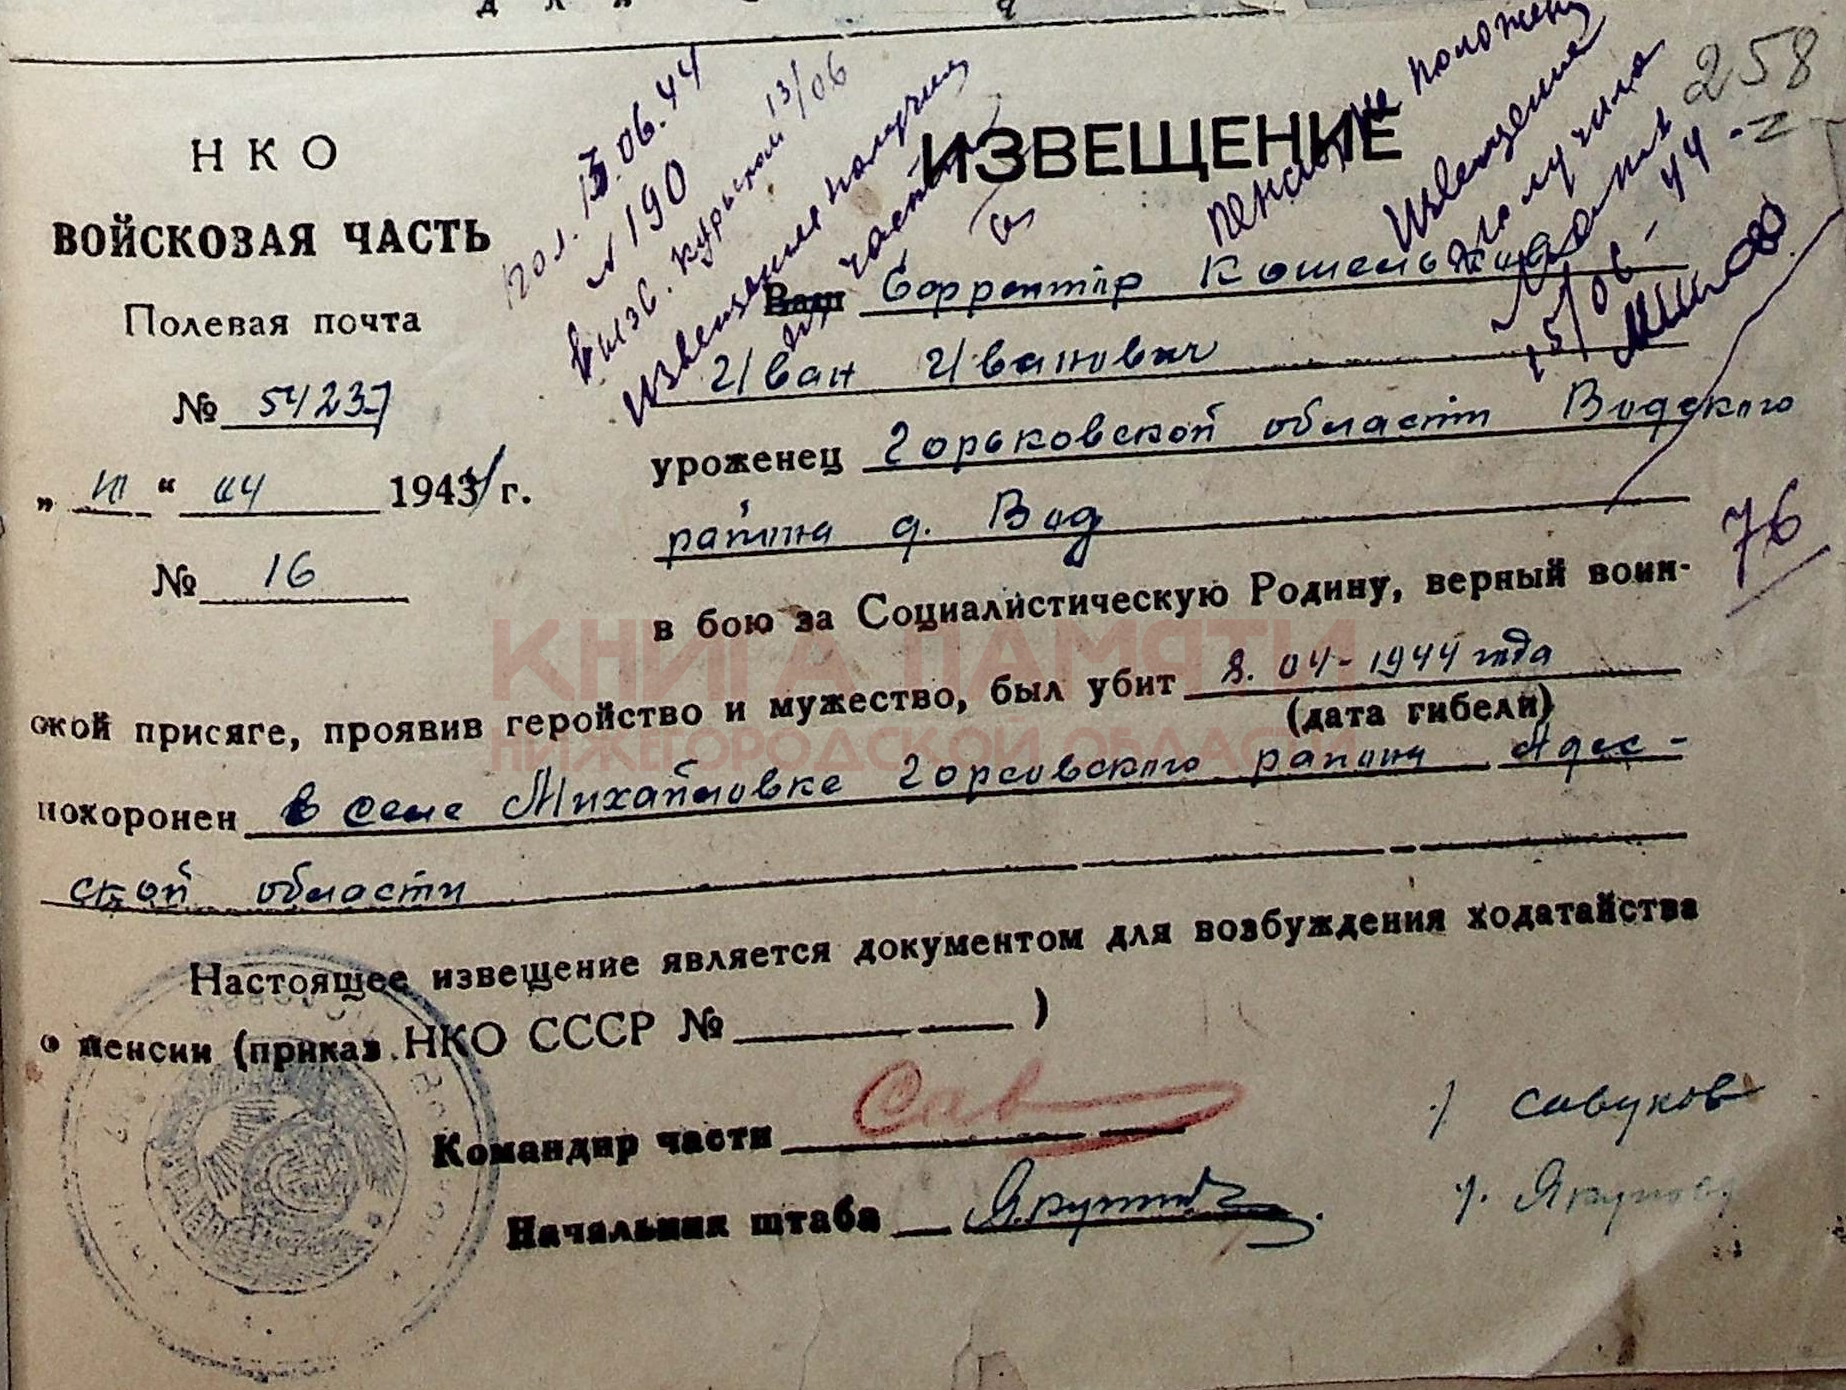 НКО
ВОЙСКОВАЯ ЧАСТЬ
Полевая почта
№ 54237
" 04 1944 г.
№ 16
пол. 13.06.44
№ 190
13/06
извещение получил
258
ИЗВЕЩЕНИЕ
положена
Извещение
получила
15/06-44
Ваш Ефрейтор
Иван Иванович
уроженец Горьковской области Водского
района д. Вад
76
в бою за Социалистическую Родину, верный воин-
ской присяге, проявив геройство и мужество, был убит 8.04-1944 года
(дата гибели)
похоронен в селе Михайловке района Адес-
ской области
Настоящее извещение является документом для возбуждения ходатайства
о пенсии (приказ НКО СССР № )
Командир части Сав /Савуков
Начальник штаба
КНИГА ПАМЯТИ
НИЖЕГОРОДСКОЙ ОБЛАСТИ